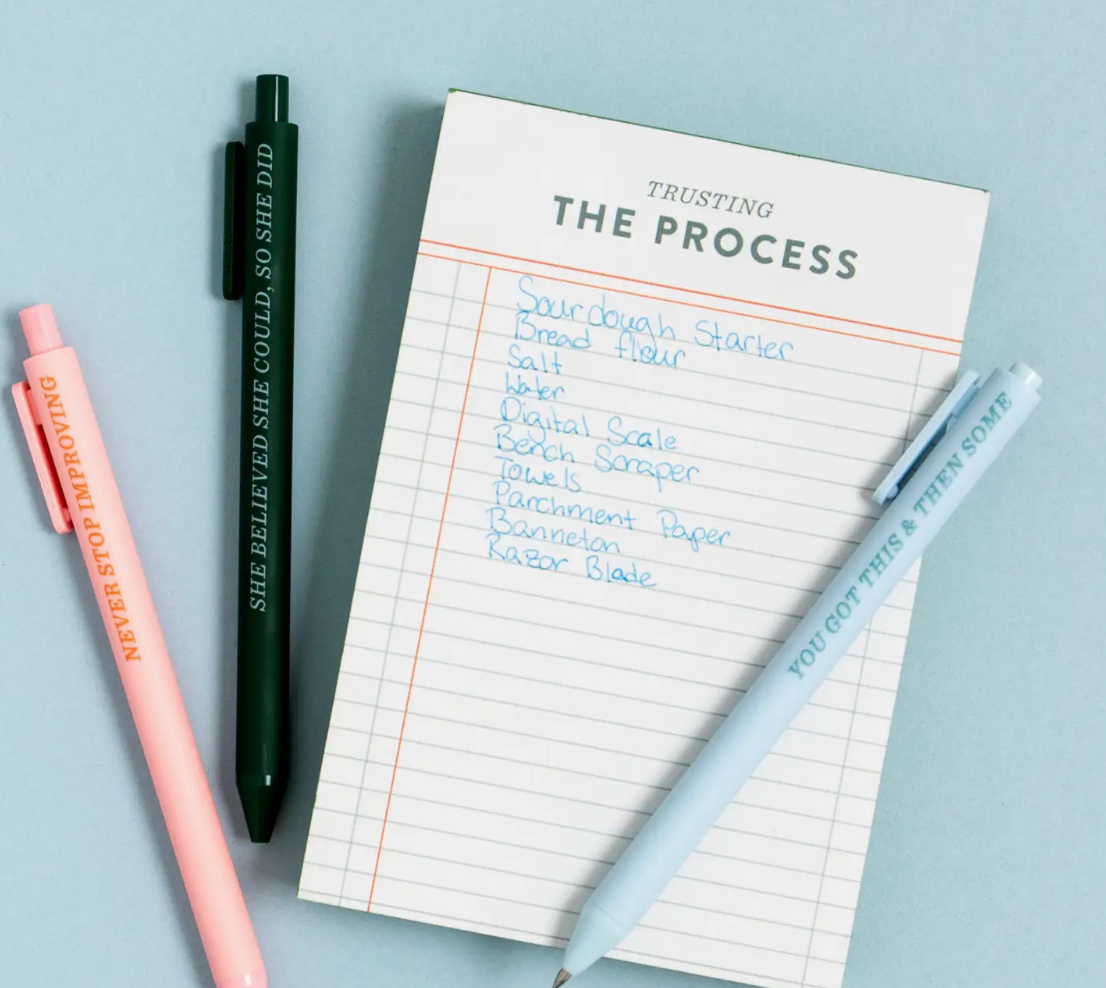 TRUSTING
THE PROCESS
Sourdough Starter
Bread flour
Salt
Water
Digital Scale
Bench Scraper
Towels
Parchment Paper
Banneton
Razor Blade
NEVER STOP IMPROVING
SHE BELIEVED SHE COULD, SO SHE DID
YOU GOT THIS & THEN SOME